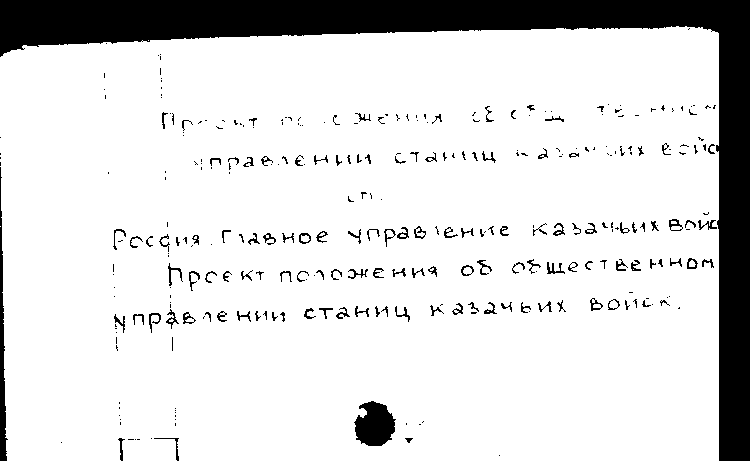 Проект положения об общественном
управлении станиц казачьих войск
см.
Россия. Главное управление казачьих войск
Проект положения об общественном
управлении станиц казачьих войск.